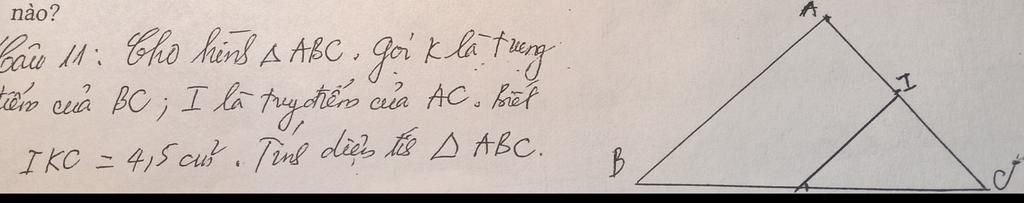 nào?
Câu 11: Cho hình Δ ABC. Gọi K là trung
điểm của BC; I là trung điểm của AC. Biết
IKC = 4,5 cm². Tính diện tích Δ ABC.
A
I
B
C